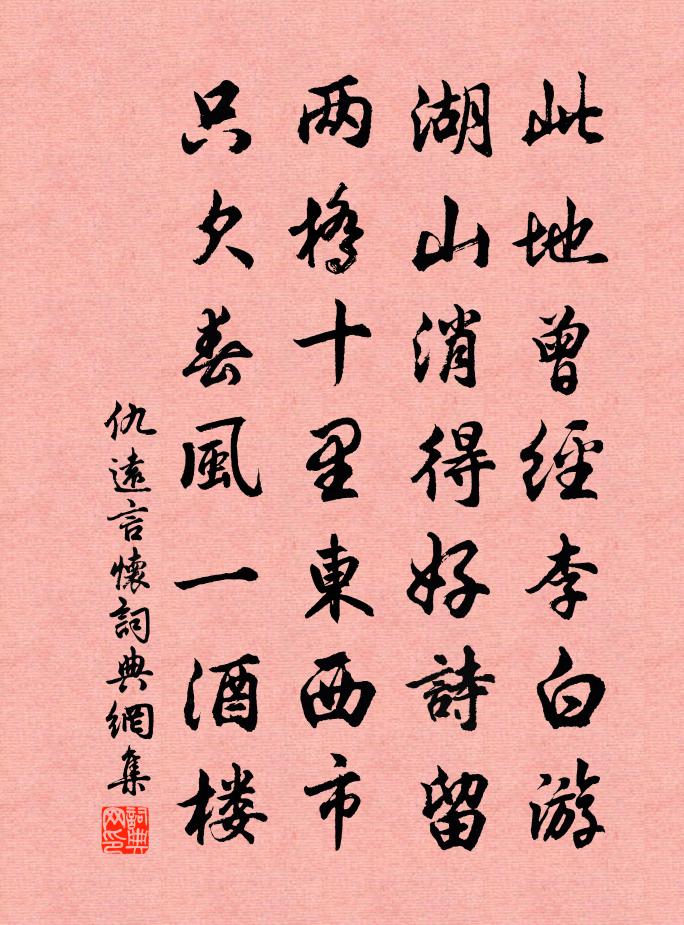 此地曾經李白游
湖山消得好詩留
两橋十里東西市
只欠春風一酒楼
仇遠言懷詞典網集
詞典网印